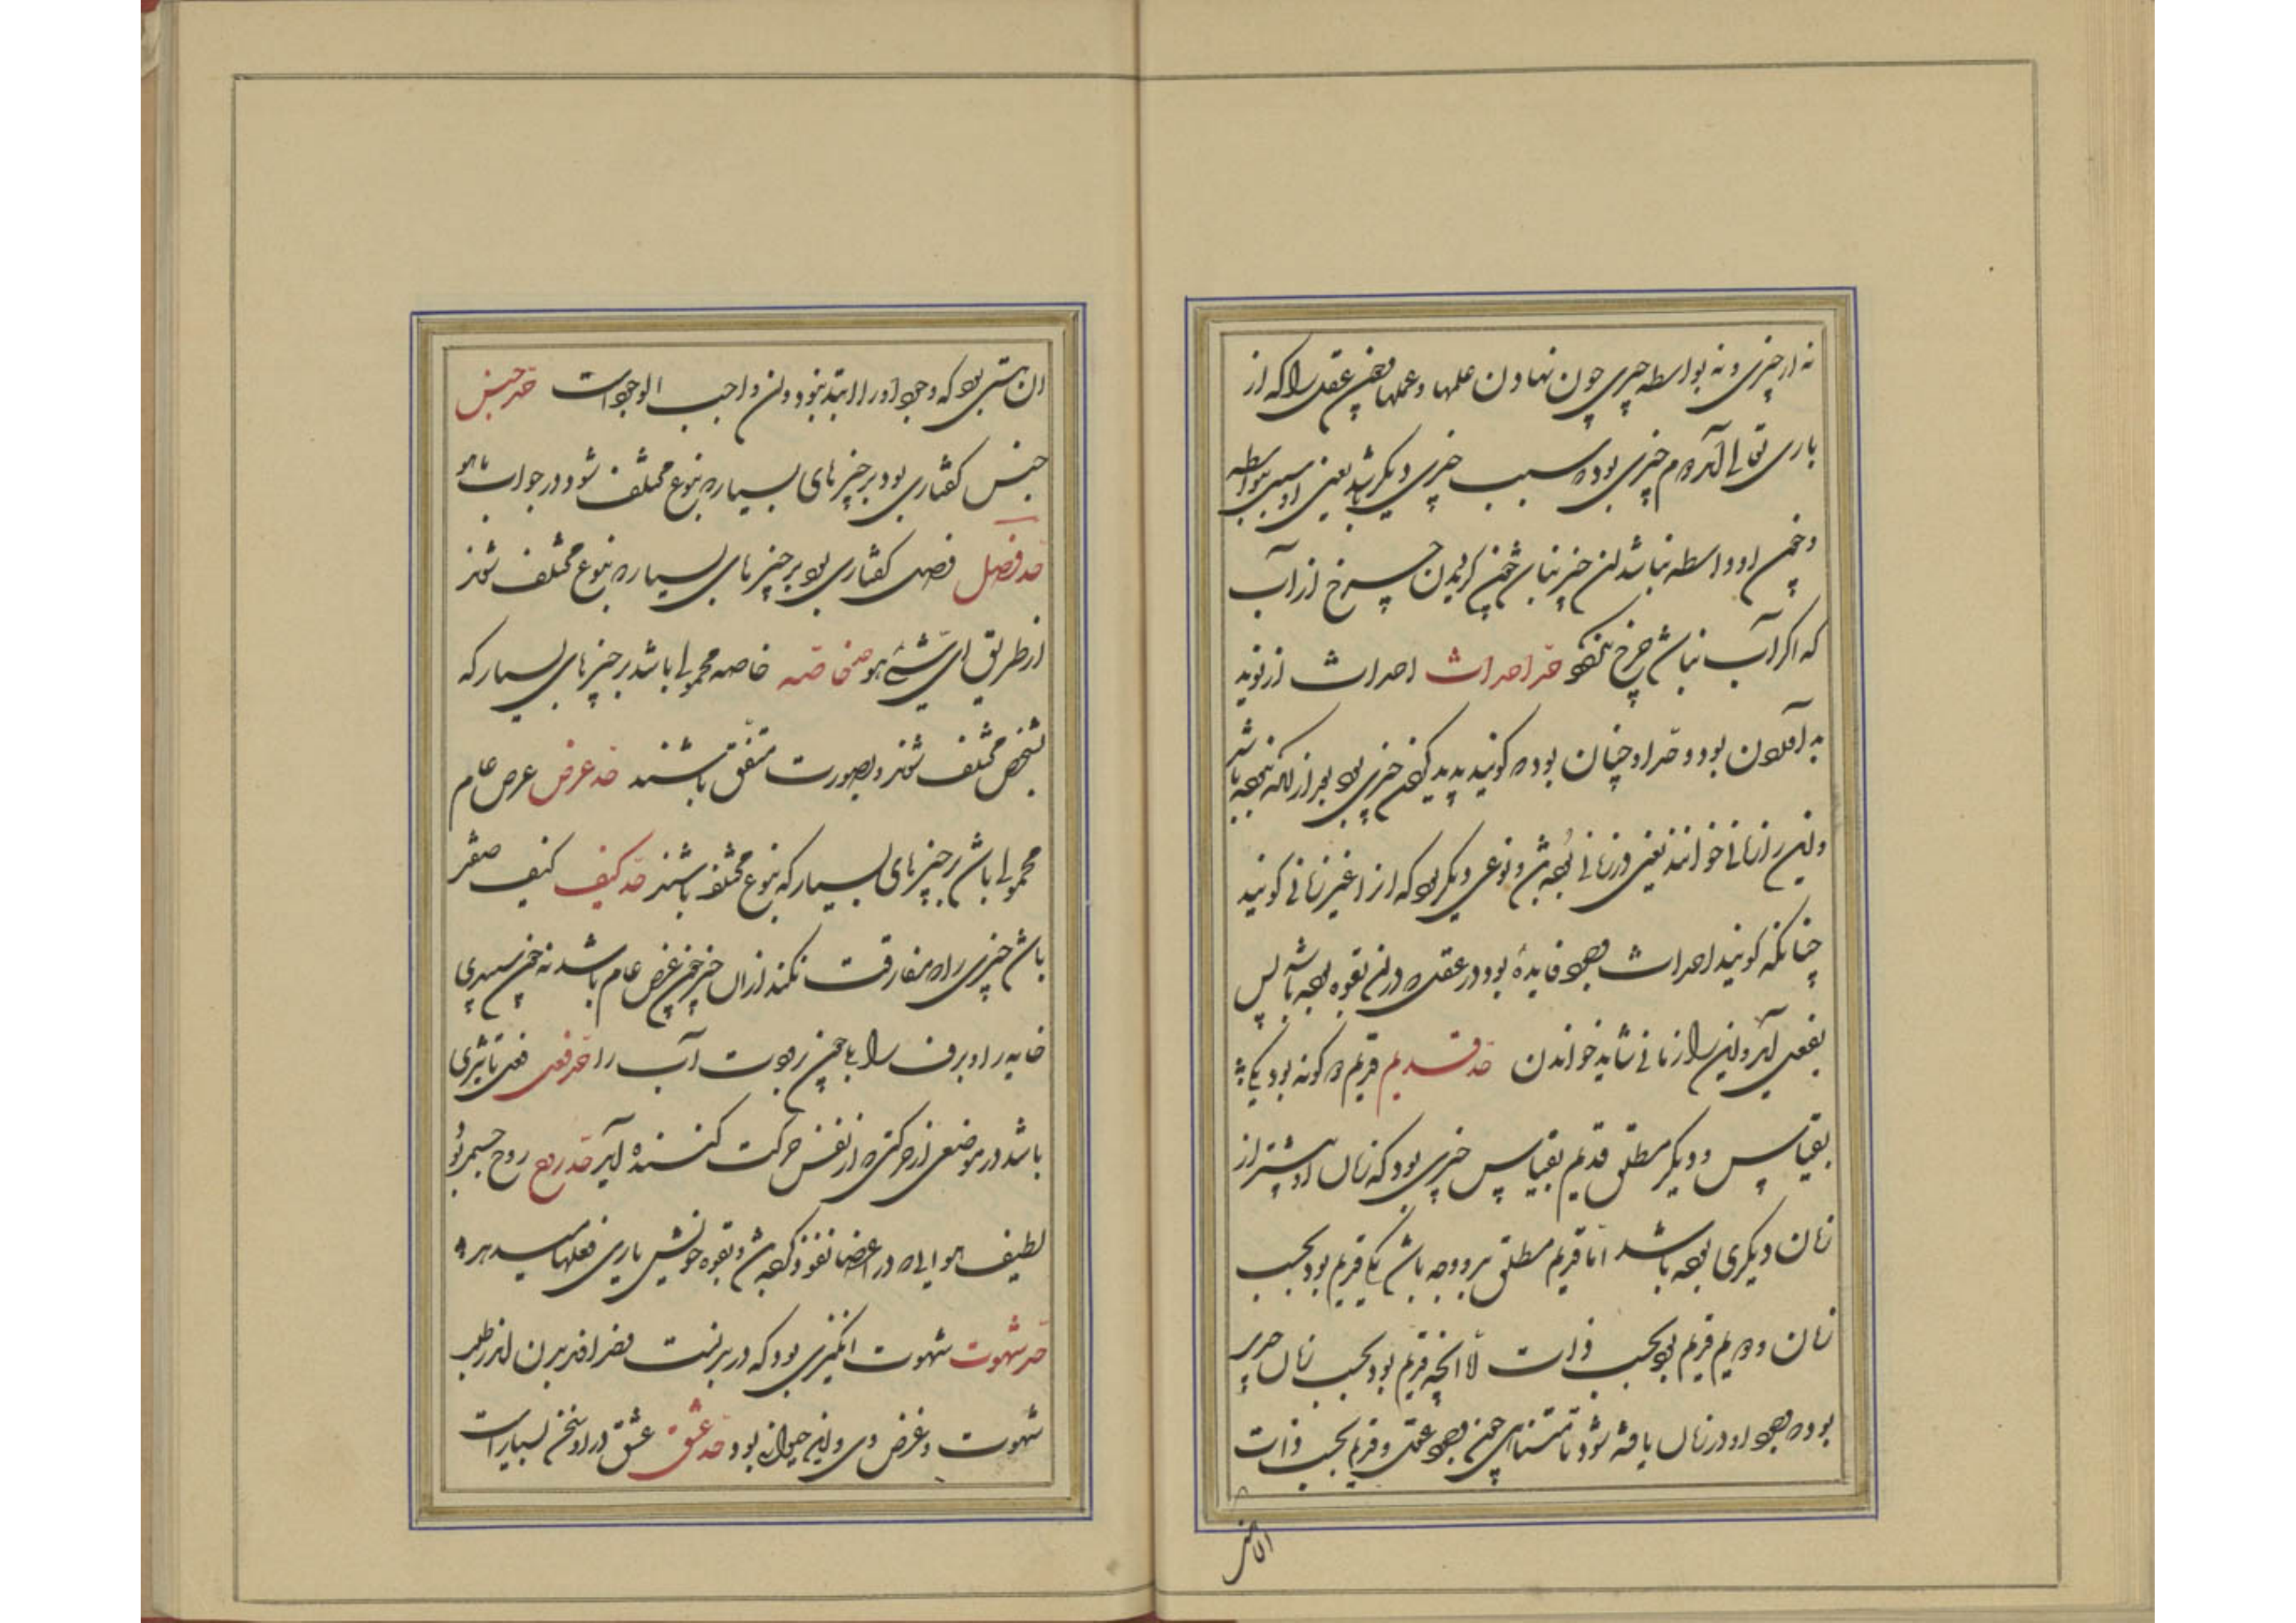 نه از چیزی و نه بواسطه چیزی چون نهادن علمها و عملها چون عقل را که از
باری تعالی آمد دوم چیزی بود که سبب چیزی دیگر باشد یعنی او سبب بواسطه
و چون او واسطه نباشد آن چیز نباشد چون گردیدن چرخ از آب
که اگر آب نباشد چرخ نگردد حد احداث احداث از نو پدید
آمدن بود و حد او چنان بود که گویند پدید کردن چیزی بود بعد از آنکه نبوده باشد
و این را زمانی خوانند یعنی در زمانی بوده باشد و نوعی دیگر بود که از را غیر زمانی گویند
چنانکه گویند احداث وجود فایده بود در عقل که در آن بقوه بوده باشد پس
بفعل آید و این را زمانی نشاید خواندن حد قدیم قدیم دو گونه بود یکی
بقیاس و دیگر مطلق قدیم بقیاس چیزی بود که زمان او بیشتر از
زمان دیگری بوده باشد اما قدیم مطلق بر دو وجه باشد یکی قدیم بود بحسب
زمان و دویم قدیم بود بحسب ذات اما آنچه قدیم بود بحسب زمان چیزی
بود که وجود او در زمان یافته شود نامتناهی چون وجود عقل و قدیم بحسب ذات
آن هستی بود که وجود او را ابتدا نبود و آن واجب الوجود است حد جنس
جنس گفتاری بود بر چیزهای بسیار که بنوع مختلف شود در جواب ما هو
حد فصل فصل گفتاری بود بر چیزهای بسیار که بنوع مختلف شوند
از طریق ای شیء هو حد خاصه خاصه محمولی باشد بر چیزهای بسیار که
بشخص مختلف شوند و بصورت متفق باشند حد عرض عرض عام
محمولی باشد بر چیزهای بسیار که بنوع مختلف باشند حد کیف کیف صفتی
باشد چیزی را که مفارقت نکند از آن چیز چون عرض عام باشد نه چون سپیدی
خایه را و برف را یا چون رطوبت آب را حد فعل فعل تاثیری
باشد در موضعی از حرکتی که از نفس حرکت کننده آید حد روح روح جسمی بود
لطیف هوایی که در اعضا نفوذ کرده باشد و بقوه خویش یاری فعلها میدهد
حد شهوت شهوت انگیزی بود که در بر نشست اندر طلب
شهوت و غرض وی و این حیوانی بود حد عشق عشق در او سخن بسیار است